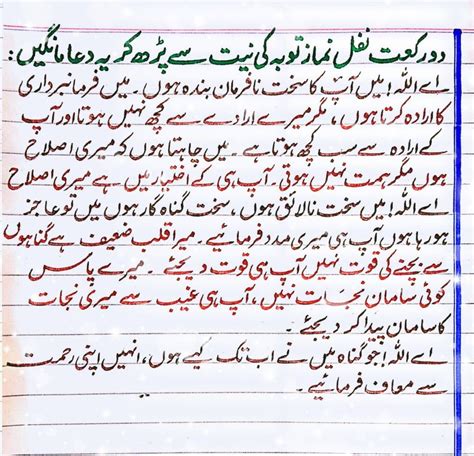 دو رکعت نفل نماز توبہ کی نیت سے پڑھ کر یہ دعا مانگیں:
اے اللہ! میں آپ کا سخت نافرمان بندہ ہوں۔ میں فرمانبرداری
کا ارادہ کرتا ہوں، مگر میرے ارادے سے کچھ نہیں ہوتا اور آپ
کے ارادہ سے سب کچھ ہوتا ہے۔ میں چاہتا ہوں کہ میری اصلاح
ہوں مگر ہمت نہیں ہوتی۔ آپ ہی کے اختیار میں ہے میری اصلاح
اے اللہ! میں سخت نالائق ہوں، سخت گناہ گار ہوں میں تو عاجز
ہو رہا ہوں آپ ہی میری مدد فرمائیے۔ میرا قلب ضعیف ہے گناہوں
سے بچنے کی قوت نہیں آپ ہی قوت دیجئے۔ میرے پاس
کوئی سامان نجات نہیں، آپ ہی غیب سے میری نجات
کا سامان پیدا کر دیجئے۔
اے اللہ! جو گناہ میں نے اب تک کیے ہوں، انہیں اپنی رحمت
سے معاف فرمائیے۔